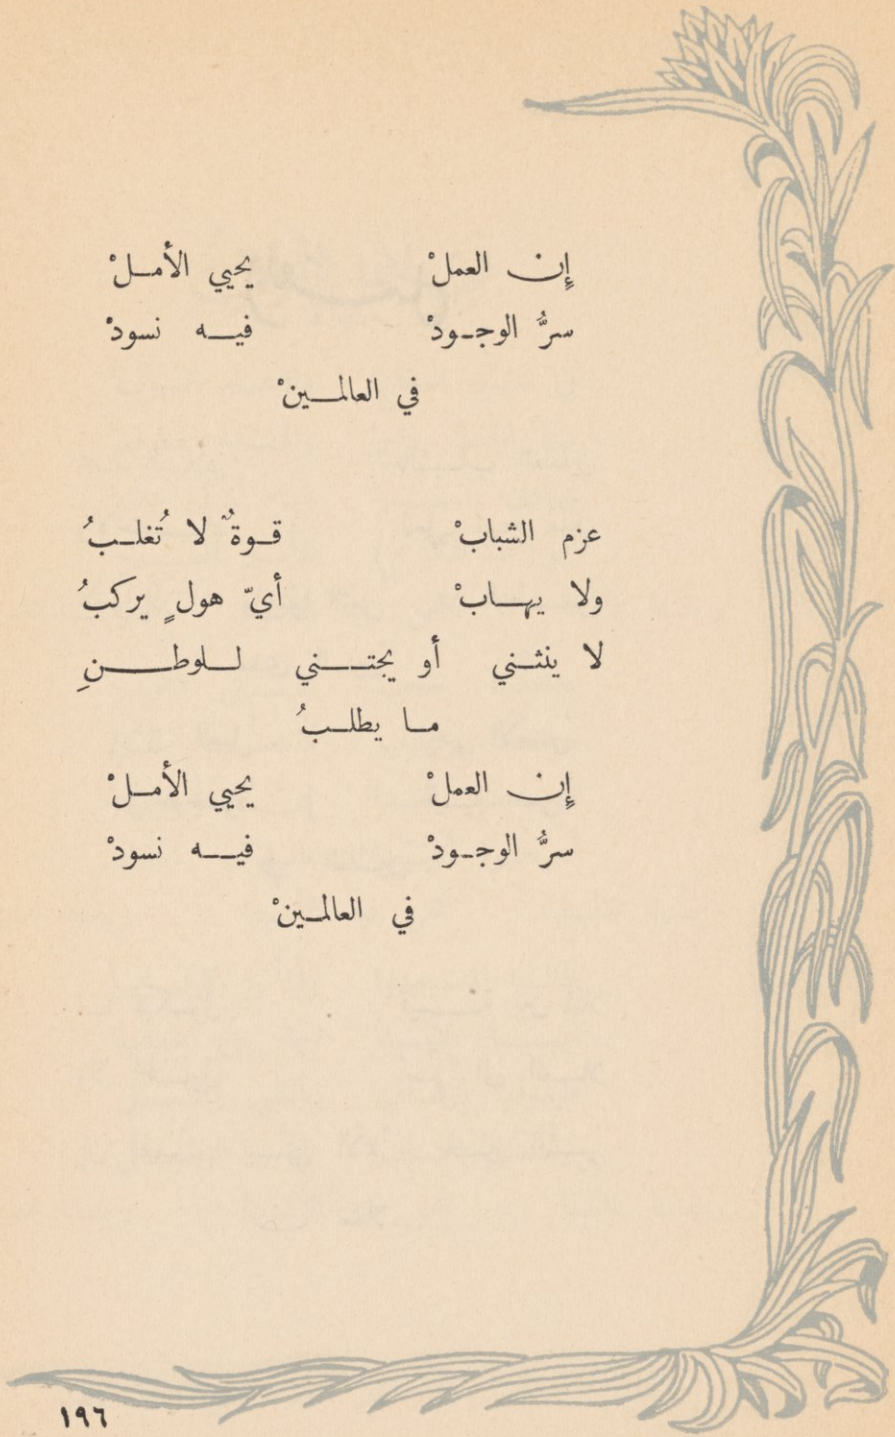 إِن العملْ يحيي الأملْ
سرُّ الوجودْ فيه نسودْ
في العالمينْ
عزم الشبابْ قوةٌ لا تُغلبُ
ولا يهابْ أيّ هولٍ يركبُ
لا ينثني أو يجتني للوطنِ
ما يطلبُ
إِن العملْ يحيي الأملْ
سرُّ الوجودْ فيه نسودْ
في العالمينْ
١٩٦